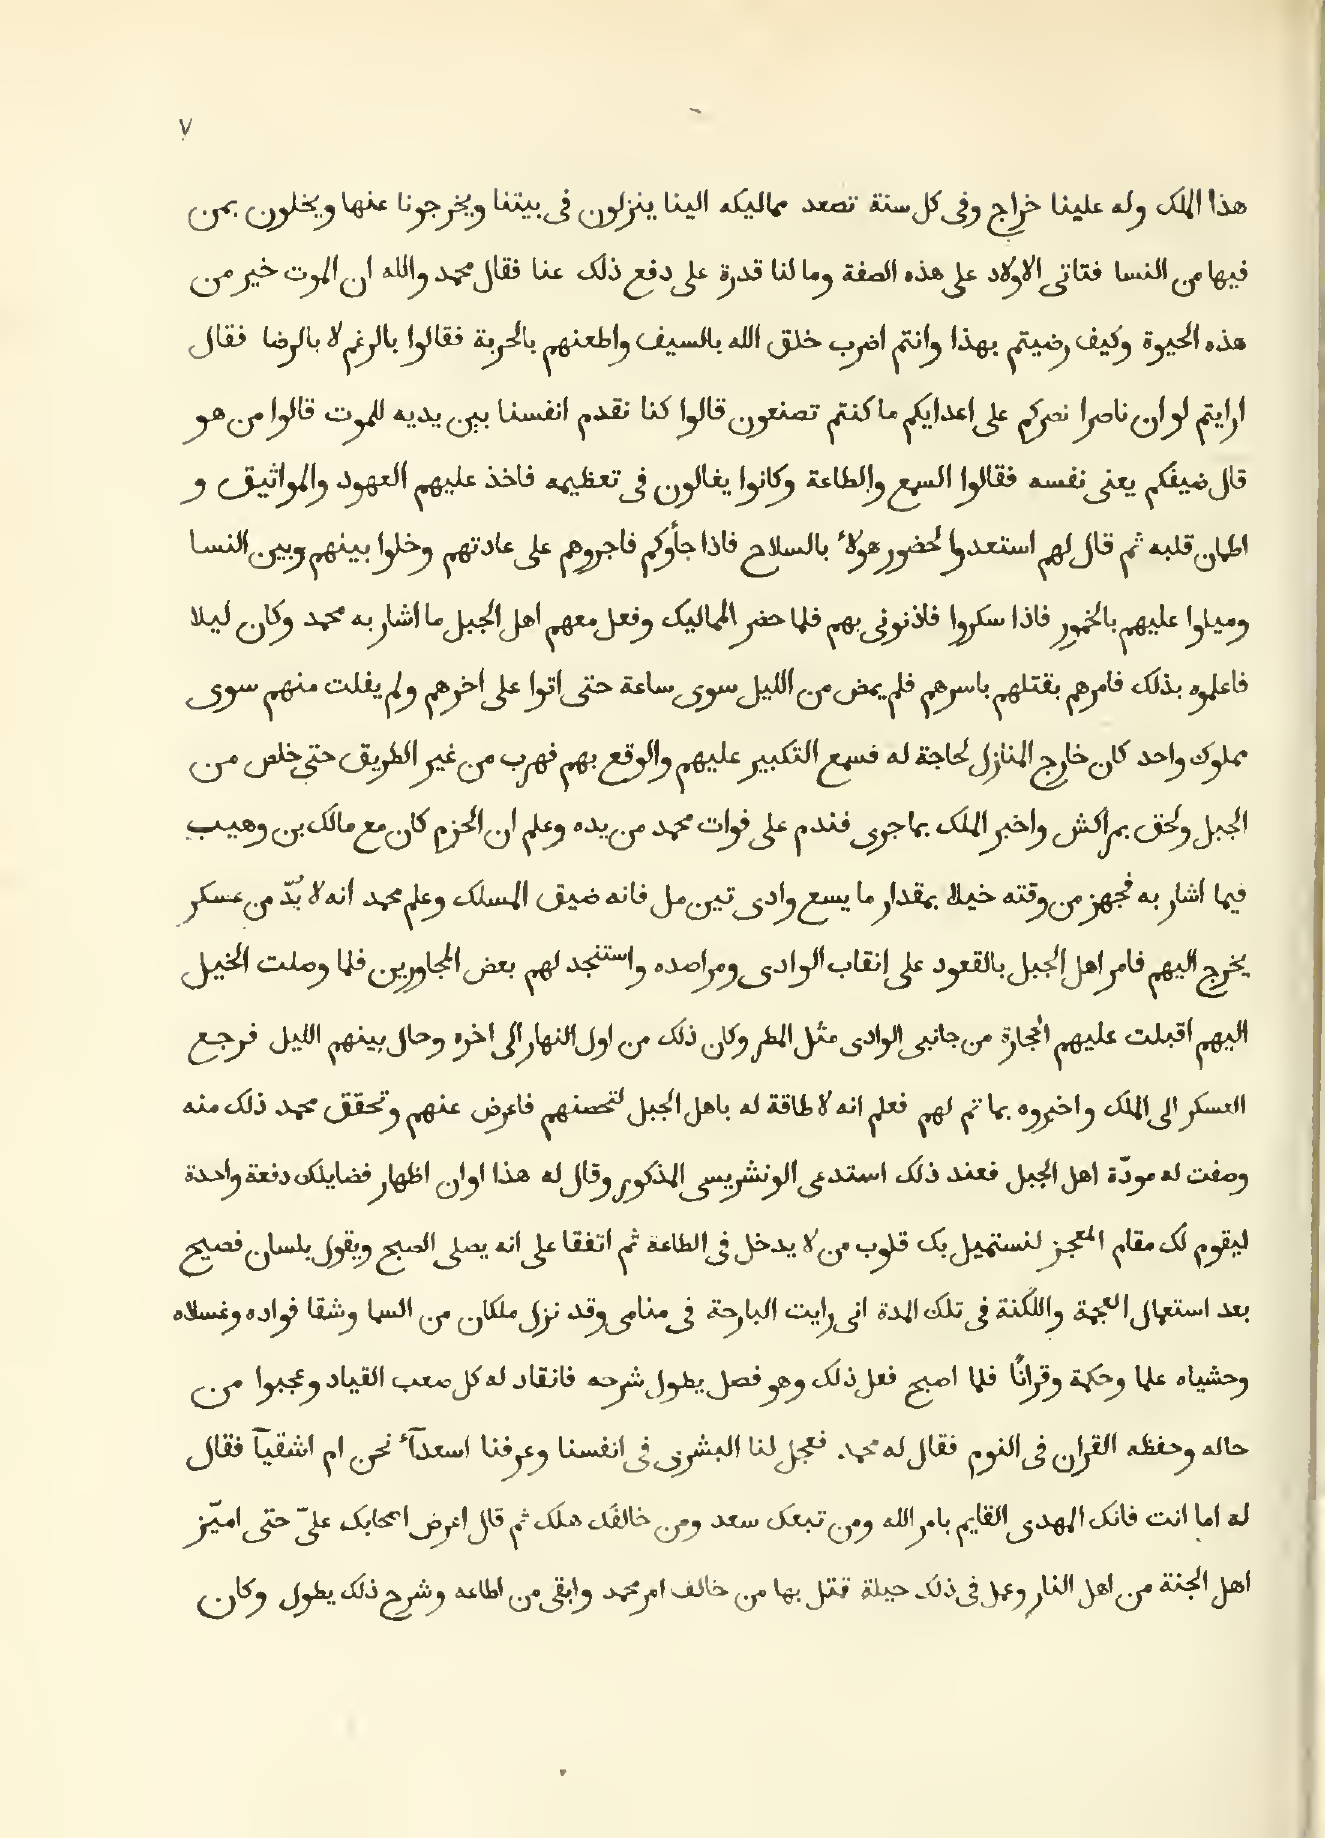 ٧
هذا الملك وله علينا خراج وفى كل سنة تصعد مماليكه الينا ينزلون فى بيتنا ويخرجونا عنها ويخلون بمن
فيها من النسا فتاتى الاولاد على هذه الصفة وما لنا قدرة على دفع ذلك عنا فقال محمد والله ان الموت خير من
هذه الحيوة وكيف رضيتم بهذا وانتم اضرب خلق الله بالسيف واطعنهم بالحربة فقالوا بالرغم لا بالرضا فقال
ارايتم لو ان ناصرا نصركم على اعدايكم ما كنتم تصنعون قالوا كنا نقدم انفسنا بين يديه للموت قالوا من هو
قال ضيفكم يعنى نفسه فقالوا السمع والطاعة وكانوا يغالون فى تعظيمه فاخذ عليهم العهود والمواثيق و
اطمان قلبه ثم قال لهم استعدوا لحضور هولاء بالسلاح فاذا جأوكم فاجروهم على عادتهم وخلوا بينهم وبين النسا
وميلوا عليهم بالخمور فاذا سكروا فاذنونى بهم فلما حضر المماليك وفعل معهم اهل الجبل ما اشار به محمد وكان ليلا
فاعلموه بذلك فامرهم بقتلهم باسرهم فلم يمض من الليل سوى ساعة حتى اتوا على اخرهم ولم يفلت منهم سوى
مملوك واحد كان خارج المنازل لحاجة له فسمع التكبير عليهم والوقع بهم فهرب من غير الطريق حتى خلص من
الجبل ولحق بمراكش واخبر الملك بما جرى فندم على فوات محمد من يده وعلم ان الحزم كان مع مالك بن وهيب
فيما اشار به فجهز من وقته خيلا بمقدار ما يسع وادى تين مل فانه ضيق المسلك وعلم محمد انه لا بُدّ من عسكر
يخرج اليهم فامر اهل الجبل بالقعود على انقاب الوادى ومراصده واستنجد لهم بعض المجاورين فلما وصلت الخيل
اليهم اقبلت عليهم الحجارة من جانبى الوادى مثل المطر وكان ذلك من اول النهار الى اخره وحال بينهم الليل فرجع
العسكر الى الملك واخبروه بما تم لهم فعلم انه لا طاقة له باهل الجبل لتحصنهم فاعرض عنهم وتحقق محمد ذلك منه
وصفت له مودّة اهل الجبل فعند ذلك استدعى الونشريسى المذكور وقال له هذا اوان اظهار فضايلك دفعة واحدة
ليقوم لك مقام المعجز لنستميل بك قلوب من لا يدخل فى الطاعة ثم اتفقا على انه يصلى الصبح ويقول بلسان فصيح
بعد استعمال العجمة واللكنة فى تلك المدة انى رايت البارحة فى منامى وقد نزل ملكان من السما وشقا فواده وغسلاه
وحشياه علما وحكمة وقرانًا فلما اصبح فعل ذلك وهو فصل يطول شرحه فانقاد له كل صعب القياد وعجبوا من
حاله وحفظه القران فى النوم فقال له محمد فعجل لنا البشرى فى انفسنا وعرفنا اسعدآء نحن ام اشقيآ فقال
له اما انت فانك المهدى القايم بامر الله ومن تبعك سعد ومن خالفك هلك ثم قال اعرض اصحابك علىّ حتى اميّز
اهل الجنة من اهل النار وعمل فى ذلك حيلة قتل بها من خالف امر محمد وابقى من اطاعه وشرح ذلك يطول وكان